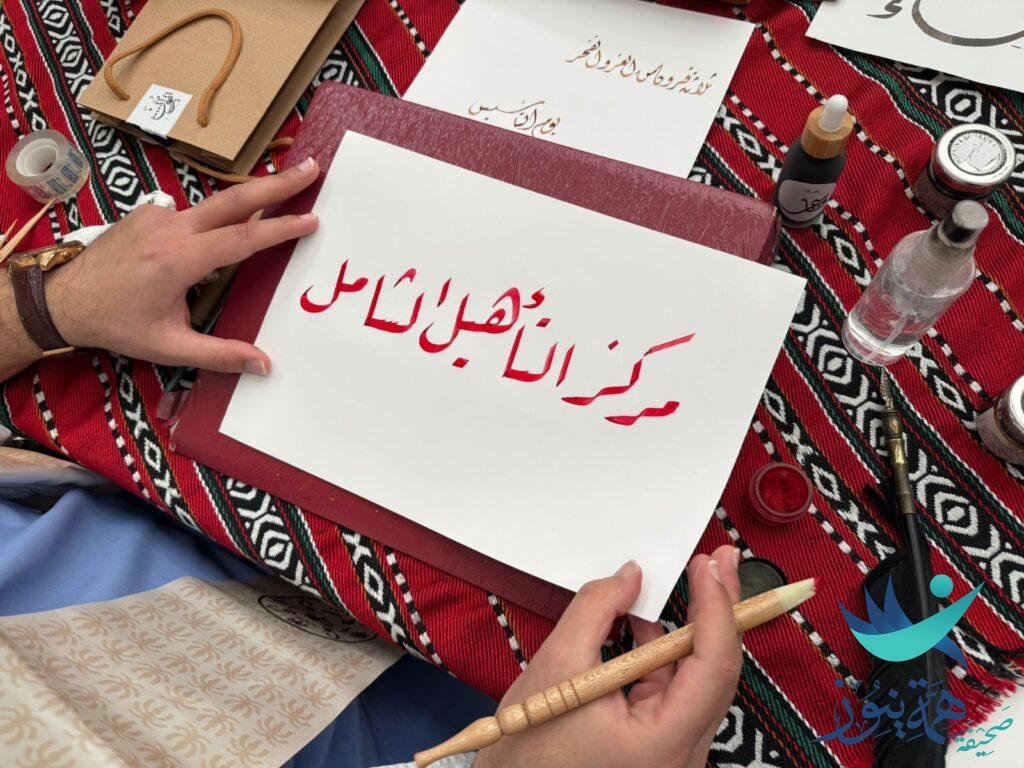 ثلاثة قرون من العز والفخر
يوم التأسيس
مركز التأهيل الشامل
صحيفة همة نيوز